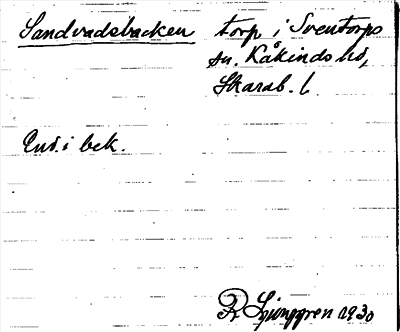 Sandvadsbacken torp i Sventorps
sn. Kåkinds hd,
Skarab. l.
End. i bek.
R. Ljunggren 1930